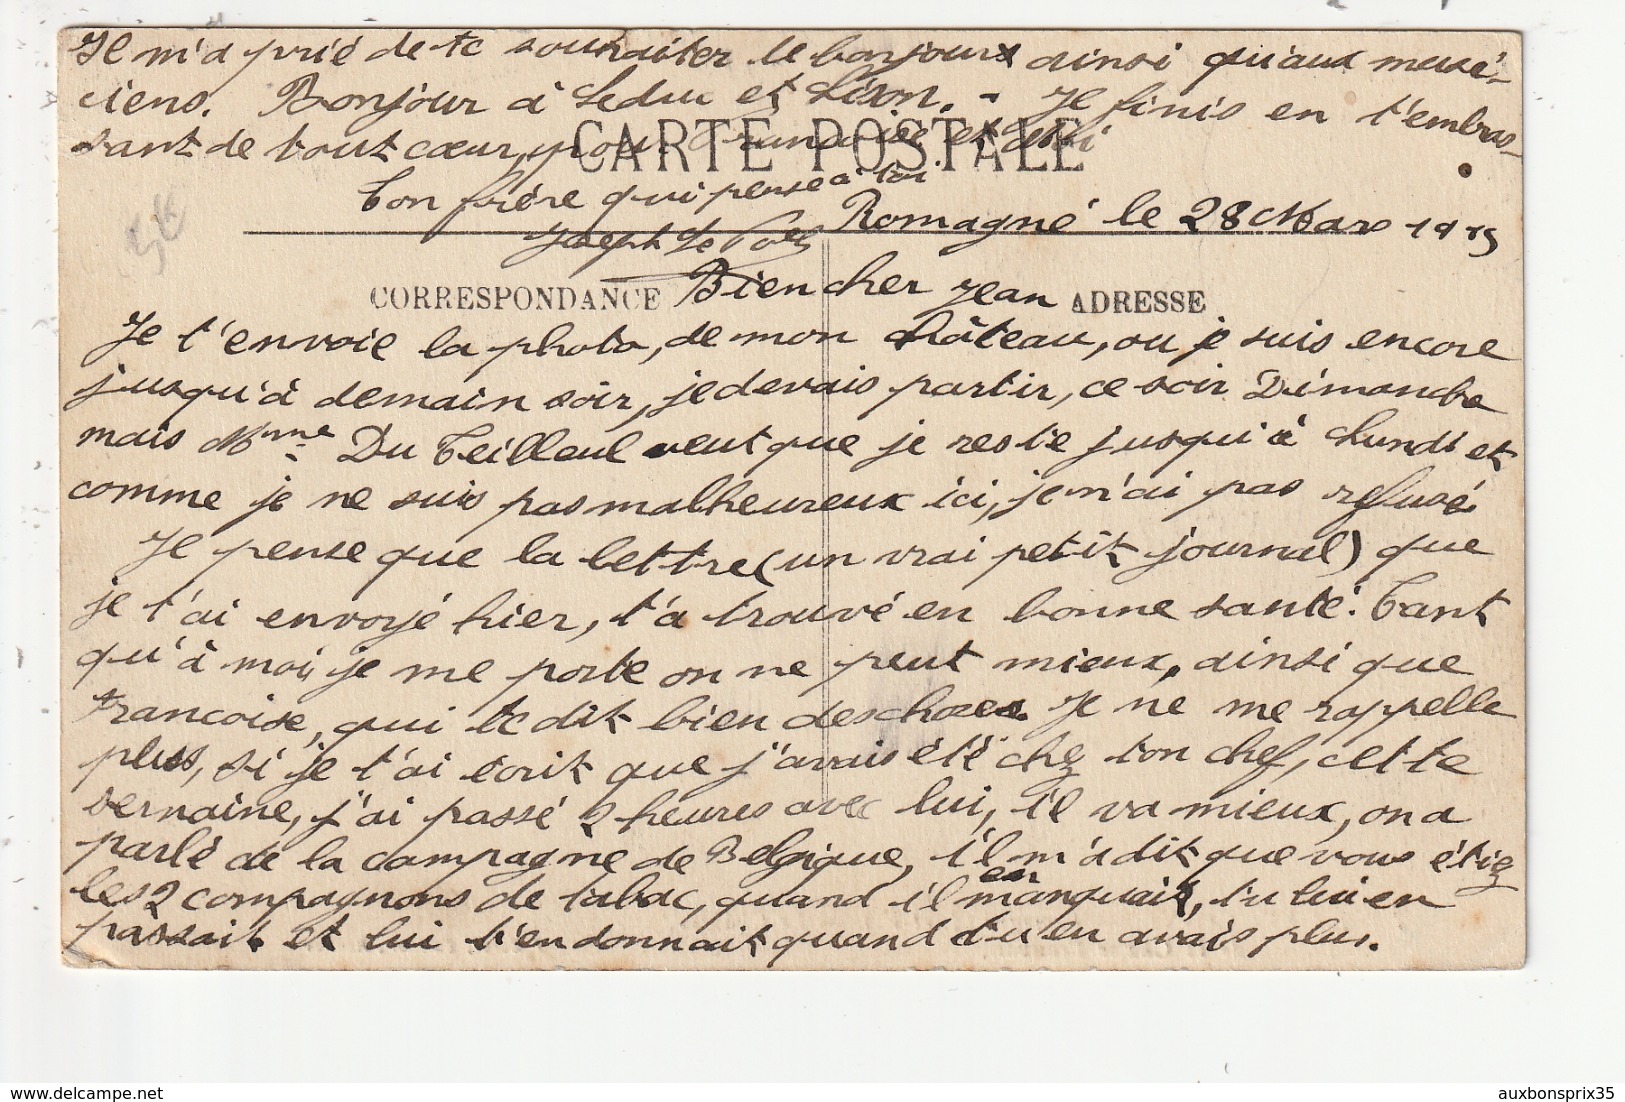 Il m'a prié de te souhaiter le bonjour ainsi qu'aux musi-
ciens. Bonjour à Leduc et Lison. - Je finis en t'embras-
sant de tout cœur, pour Francoise et moi
CARTE POSTALE
Ton frère qui pense à toi
Joseph Le
Romagné le 28 Mars 1915
CORRESPONDANCE
Bien cher Jean
ADRESSE
Je t'envoie la photo, de mon château, ou je suis encore
jusqu'à demain soir, je devais partir, ce soir Dimanche
mais Mme Du Teilleul veut que je reste jusqu'à Lundi et
comme je ne suis pas malheureux ici, je n'ai pas refusé
Je pense que la lettre (un vrai petit journal) que
je t'ai envoyé hier, t'a trouvé en bonne santé. Tant
qu'à moi, je me porte on ne peut mieux, ainsi que
Francoise, qui te dit bien des choses. Je ne me rappelle
plus, si je t'ai écrit que j'avais été chez ton chef, cette
semaine, j'ai passé 2 heures avec lui, il va mieux, on a
parlé de la campagne de Belgique, il m'a dit que vous étiez
les 2 compagnons de tabac, quand il en manquait, tu lui en
passait et lui t'en donnait quand tu en avais plus.
delcampe.net
auxbonsprix35